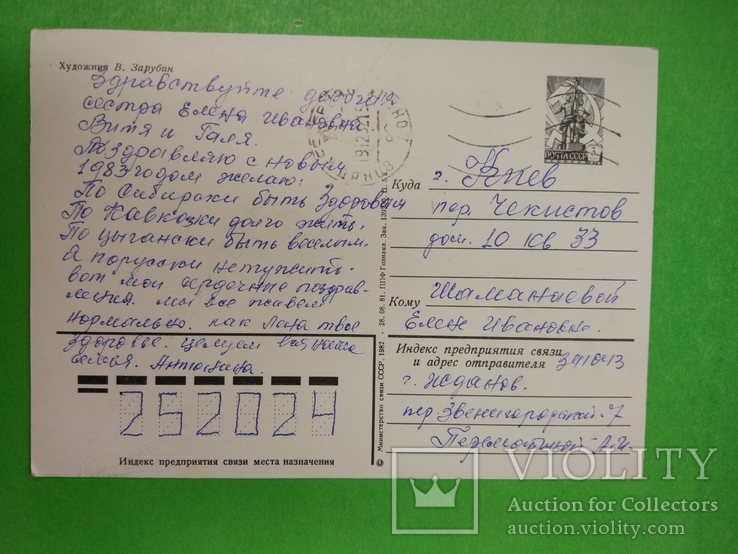 Художник В. Зарубин
Здравствуйте дорогая
сестра Елена Ивановна
Витя и Галя.
Поздравляю с новым
1983 годом желаю:
По Сибирски быть Здоровым
По Кавкозки долго жить.
По цыгански быть веселым.
А порусски не тужить.
вот мои сердечные поздрав-
ления. мы все живем
нормально. как Лена твое
здоровье. целуем вся наша
семья. Антонина.
252024
Индекс предприятия связи места назначения
© Министерство связи СССР. 1982
28. 06. 81. ППФ Гознака. Зак.
ПОЧТА СССР
Куда г. Киев
пер. Чекистов
дом. 10 кв 33
Кому Шаманаевой
Елене Ивановне.
Индекс предприятия связи
и адрес отправителя 341043
г. Жданов.
пер Звенигородский-7
А.И.
VIOLITY
Auction for Collectors
auction.violity.com